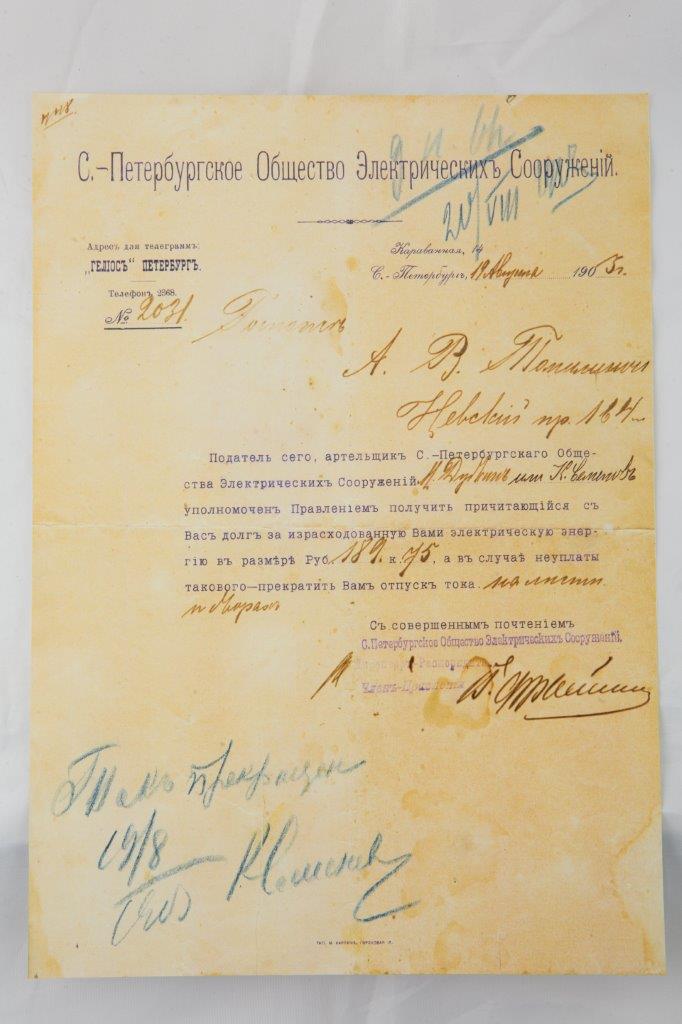 С.-Петербургское Общество Электрическихъ Сооруженій.
20/VIII
Адресъ для телеграммъ:
„ГЕЛІОСЪ“ ПЕТЕРБУРГЪ.
Телефонъ 2368.
№ 2031.
Караванная, 14
С.-Петербургъ, 19 Августа 1903 г.
А. В.
Невскій пр. 184
Податель сего, артельщикъ С.-Петербургскаго Обще-
ства Электрическихъ Сооруженій или К. Семеновъ
уполномоченъ Правленіемъ получить причитающійся съ
Васъ долгъ за израсходованную Вами электрическую энер-
гію въ размѣрѣ Руб. 189. к. 75, а въ случаѣ неуплаты
такового—прекратить Вамъ отпускъ тока.
Съ совершеннымъ почтеніемъ
С.Петербургское Общество Электрическихъ Сооруженій,
Членъ-Правленія
Токъ прекращенъ
19/8
К Семеновъ